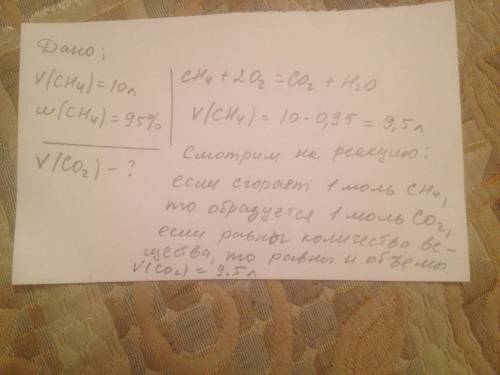 Дано:
V(CH4)=10л
w(CH4)=95%
V(CO2)-?
CH4+2O2=CO2+H2O
V(CH4)=10·0,95=9,5л
Смотрим на реакцию:
если сгорает 1 моль CH4,
то образуется 1 моль CO2,
если равны количества ве-
щества, то равны и объемы
V(CO2)=9.5л